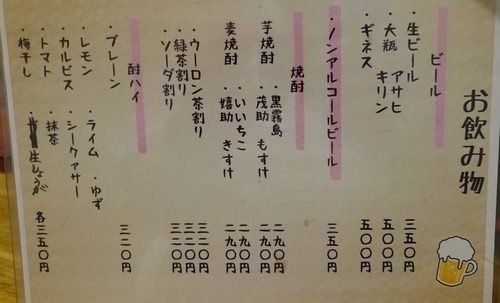 お飲み物
ビール
・生ビール 三五〇円
・大瓶 アサヒ キリン 五〇〇円
・ギネス 五〇〇円
・ノンアルコールビール 三五〇円
焼酎
芋焼酎 ・黒霧島 二九〇円
・茂助 もすけ 二九〇円
麦焼酎 ・いいちこ 二九〇円
・嬉助 きすけ 二九〇円
・ウーロン茶割り 三二〇円
・緑茶割り 三二〇円
・ソーダ割り 三二〇円
酎ハイ
・プレーン 三二〇円
・レモン ・ライム ・ゆず
・カルピス ・シークァサー
・トマト ・抹茶
・梅干し ・生しょうが 各三五〇円